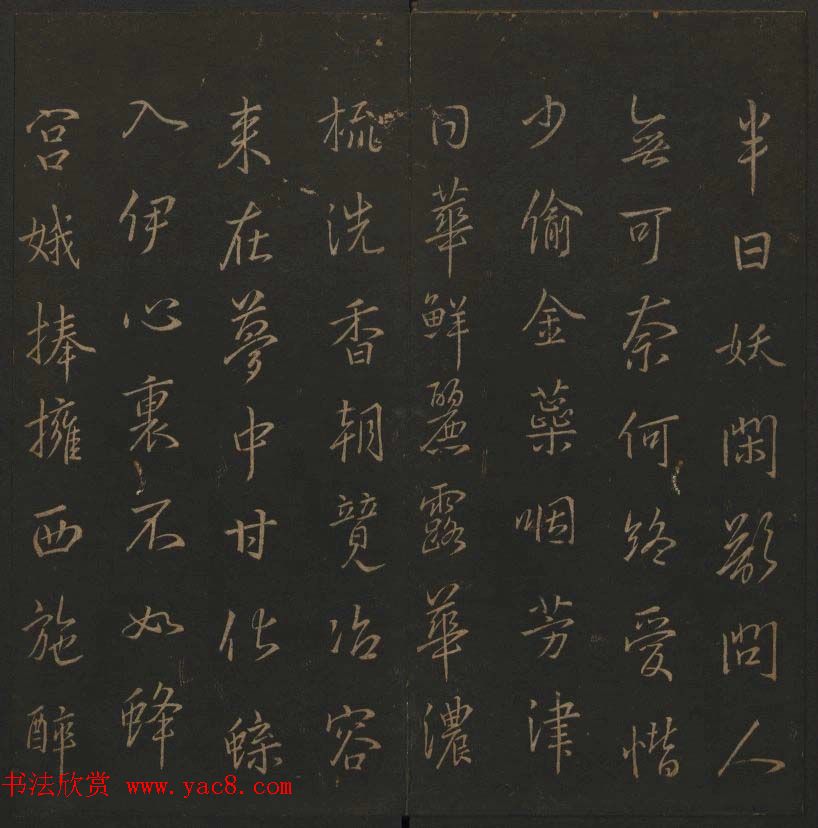 半日妖閑問人
無可奈何終愛惜
少偷金蘂咽芳津
日華鮮麗露華濃
梳洗香朝競冶容
来在夢中甘作蝶
入伊心裏不如蜂
宮娥捧擁西施醉
书法欣赏 www.yac8.com